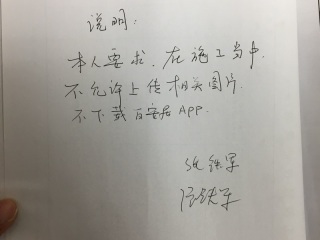 说明:
本人要求.在施工当中.
不允许上传相关图片.
不下载百安居App.
铁军
铁军